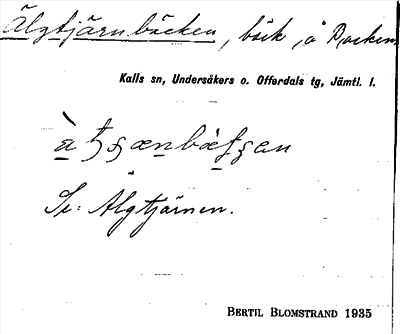 Älgtjärnbäcken, bäck å Backen
Kalls sn, Undersåkers o. Offerdals tg, Jämtl. l.
Se: Älgtjärnen.
BERTIL BLOMSTRAND 1935